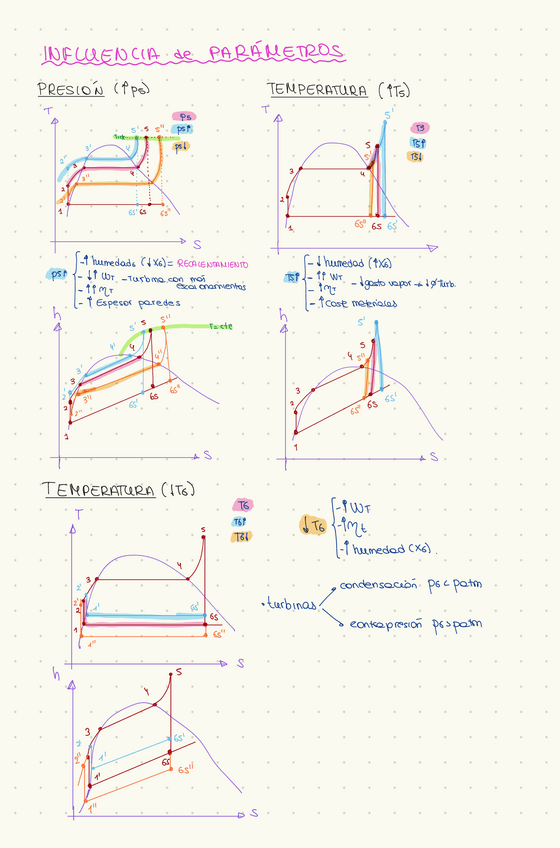 INFLUENCIA de PARÁMETROS
PRESIÓN (↑p5)
T
p5
p5↑
p5↓
5' 5 5''
3'
2''
3
4
2
1
6s' 6s 6s''
S
p5↑
-↑ humedads (↓x6) = RECALENTAMIENTO
-↓ WT - Turbina con más escalonamientos
-↑↑ ηT
-↑ Espesor paredes
h
T=cte
5' 5 5''
4'
4
4''
3'
3
3''
2'
2
2''
1
6s' 6s 6s''
S
TEMPERATURA (↑T5)
T
T5
T5↑
T5↓
5'
5
3
4
2
1
6s'' 6s 6s'
T5↑
-↓ humedad (↑x6)
-↑↑ WT
-↑ ηT
-↓gasto vapor → ↓φ turb.
-↑ Coste materiales
h
5'
5
5''
4
3
2
1
6s'' 6s 6s'
S
TEMPERATURA (↓T6)
T
T6
T6↑
T6↓
5
4
3
2'
2
1'
1''
6s'
6s
6s''
S
↓T6
-↑ WT
-↑ ηt
-↑ humedad (x6).
• turbinas
condensación p6<patm
contrapresión p6>patm
h
5
4
3
2
2''
1'
1'
1''
6s'
6s
6s''
S